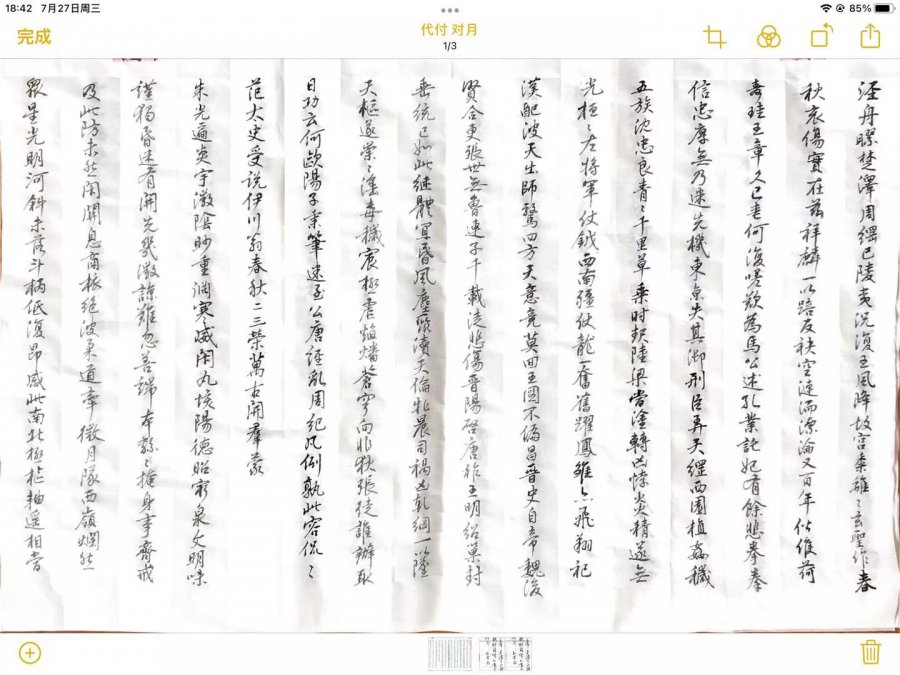 泾舟膠楚澤周綱已陵夷況復王風降故宫黍離〻玄聖作春
秋哀傷實在兹祥麟一以踣反袂空漣洏漂淪又百年僭侯荷
爵珪王章久已喪何復嗟歎為馬公述孔業託始有餘悲拳拳
信忠厚無乃迷先機東京失其御刑臣弄天綱西園植姦穢
五族沈忠良青〻千里草乘時起陸梁當塗轉凶悖炎精遂無
光桓〻左將軍仗鉞西南疆伏龍奮舊躍鳳雛亦飛翔祀
漢配彼天出師驚四方天意竟莫回王圖不偏昌晉史自帝魏後
賢合更張世無魯連子千載徒悲傷晉陽啓唐祚王明紹巢封
垂統已如此繼體宜昏風麀聚瀆天倫牝晨司禍凶乾綱一墜
天樞遂崇〻淫毒穢宸極虐焰燔蒼穹向非狄張徒誰辦取
日功云何歐陽子秉筆迷至公唐經亂周紀凡例孰此容侃〻
范太史受説伊川翁春秋二三策萬古開羣蒙
朱光遍炎宇微陰眇重淵寒威閉九垓陽德昭窮泉文明昧
謹獨昏迷有開先幾微諒難忽善端本緜〻掩身事齋戒
及此防未然閉關息商旅絶彼柔道牽微月墮西嶺爛然
衆星光明河斜未落斗柄低復昂感此南北極樞軸遥相當
18:42 7月27日周三
85%
完成
代付 对月
1/3